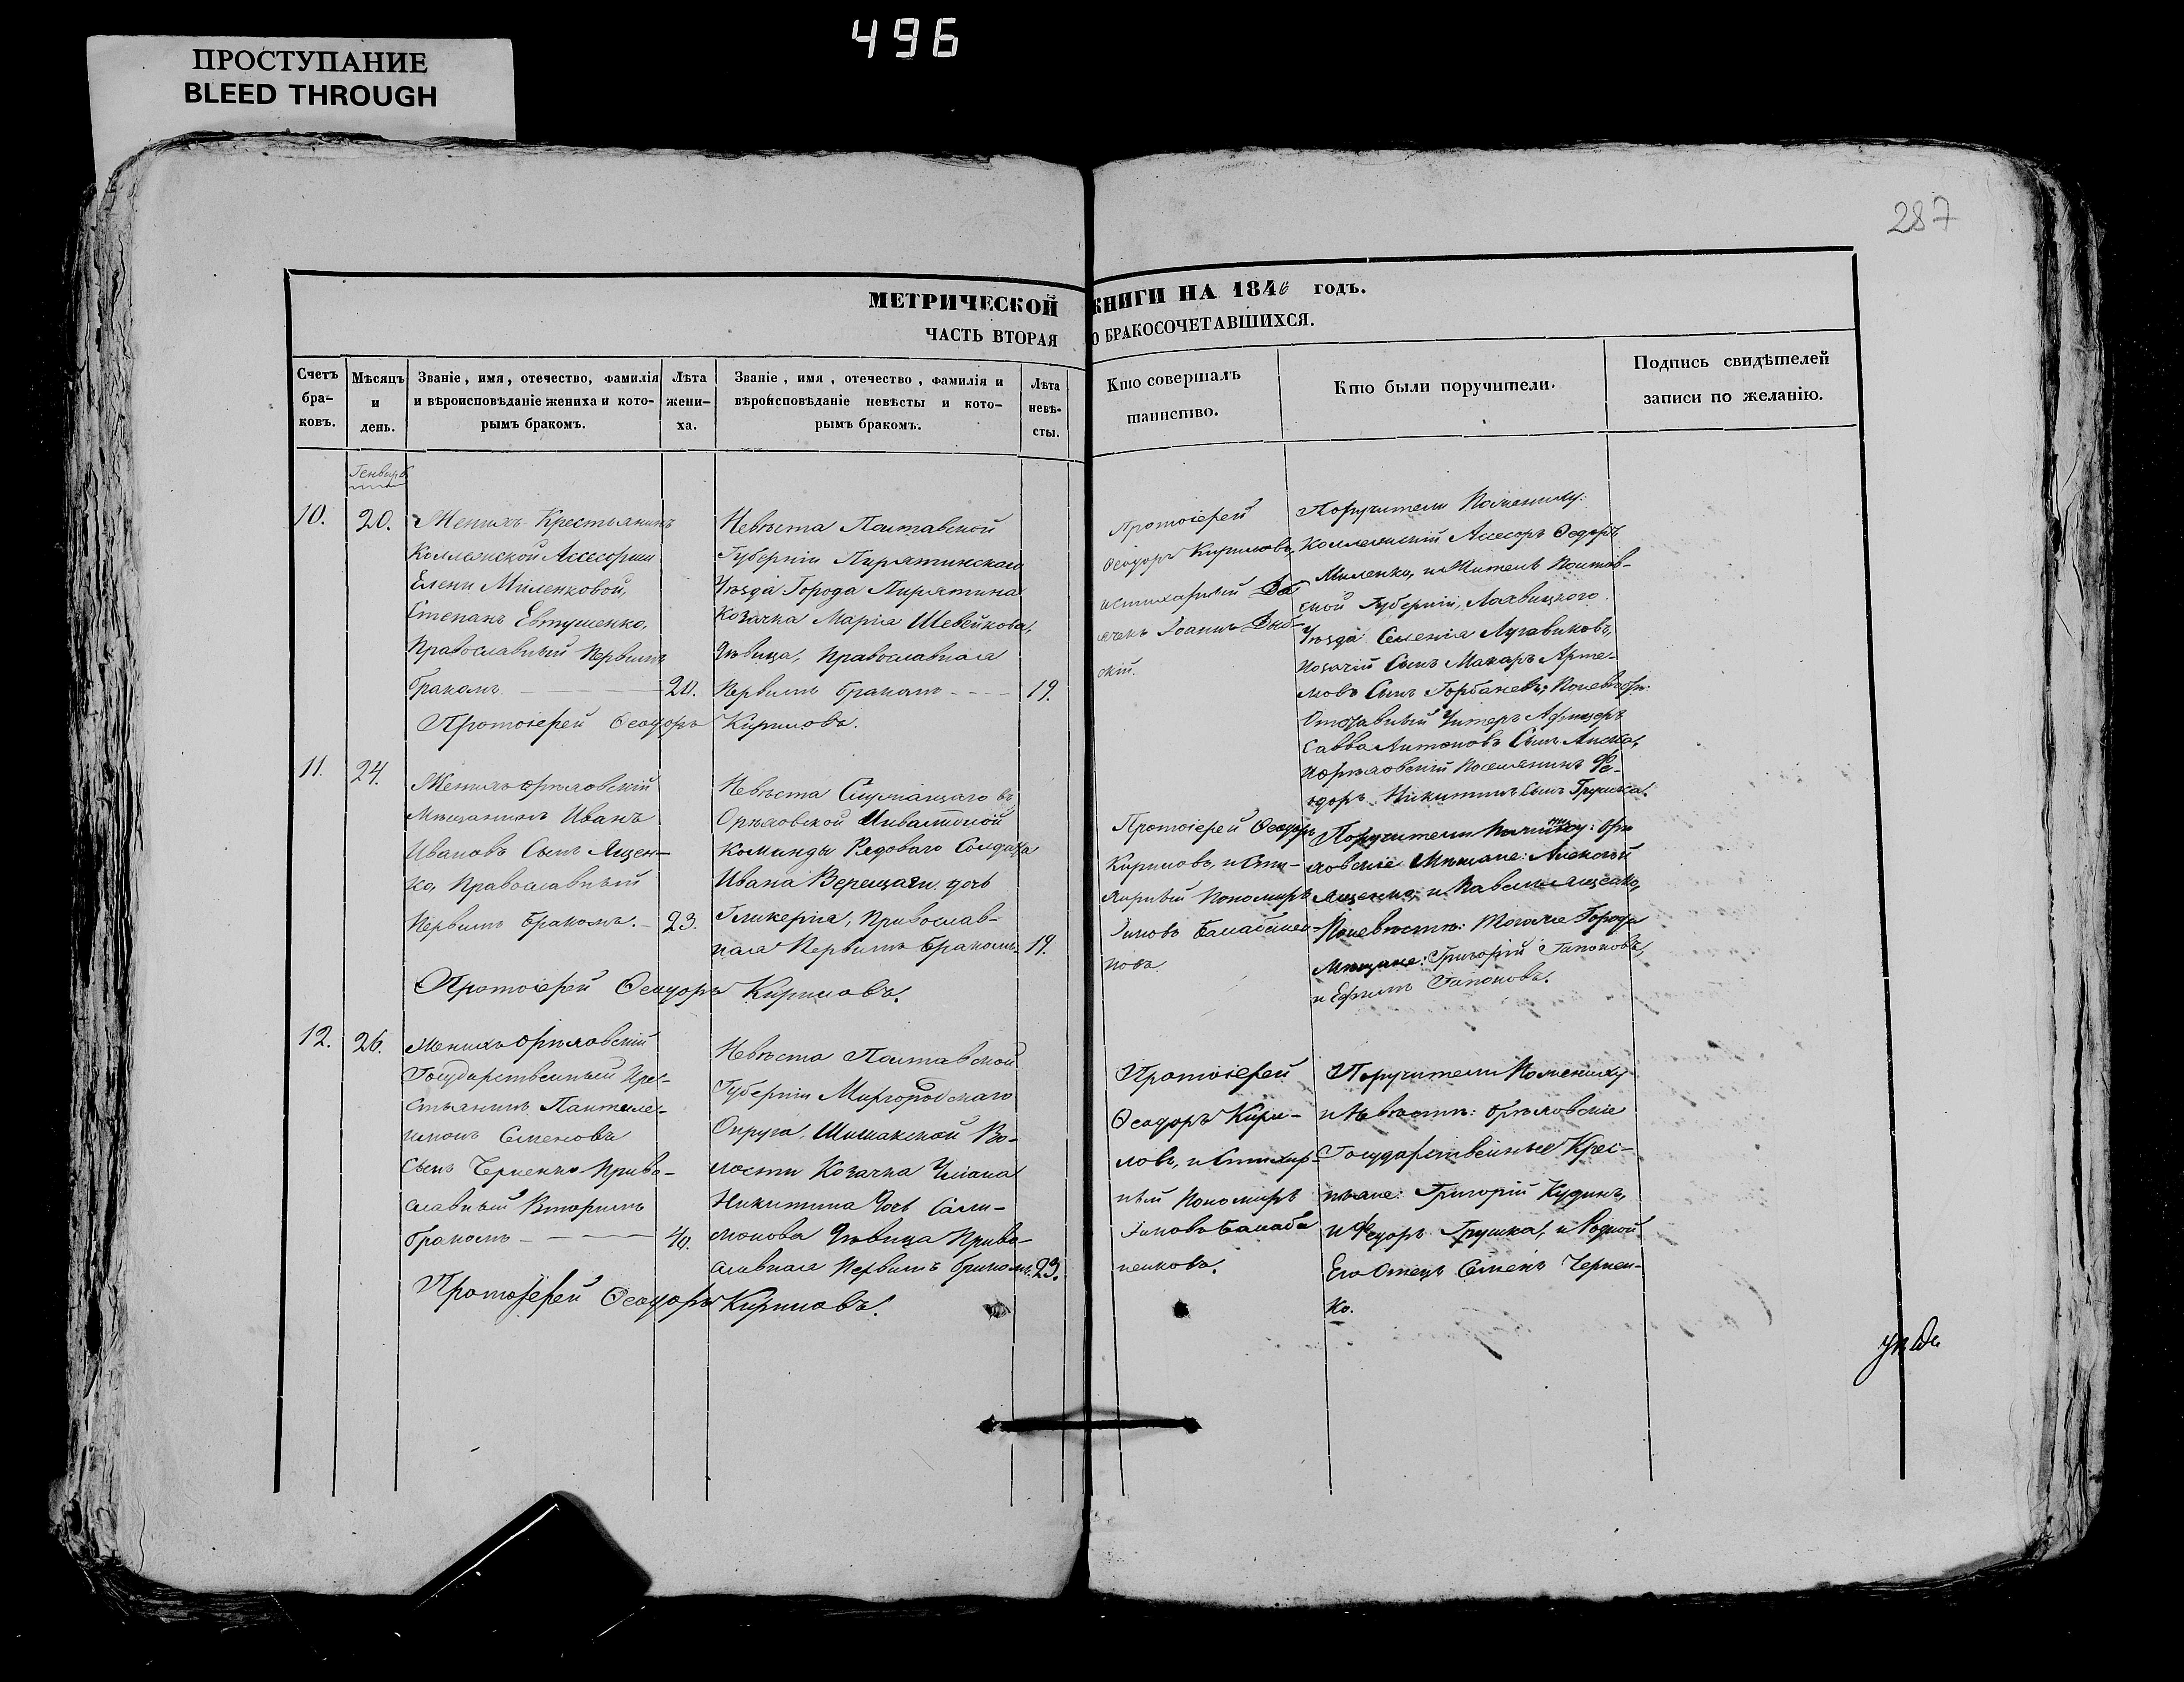 496
ПРОСТУПАНИЕ
BLEED THROUGH
287
МЕТРИЧЕСКОЙ КНИГИ НА 1846 годъ.
ЧАСТЬ ВТОРАЯ О БРАКОСОЧЕТАВШИХСЯ.
Счетъ бра-
ковъ.
Мѣсяцъ
и
день.
Званіе, имя, отечество, фамилія
и вѣроисповѣданіе жениха и кото-
рымъ бракомъ.
Лѣта
жени-
ха.
Званіе, имя, отечество, фамилія и
вѣроисповѣданіе невѣсты и кото-
рымъ бракомъ.
Лѣта
невѣ-
сты.
Кто совершалъ
таинство.
Кто были поручители.
Подпись свидѣтелей
записи по желанію.
Генварь
10.
20.
Женихъ Крестьянинъ
Коллежской Ассесорши
Елены Миленковой,
Степанъ Евтушенко,
Православный Первымъ
бракомъ
20.
Невѣста Полтавской
Губерніи Пирятинскаго
Уѣзда Города Пирятина
Козачка Марія Шевейкова,
дѣвица, Православная
Первымъ бракомъ
19.
Протоіерей
Ѳеодоръ Кириловъ,
и стихарный Дь
ячекъ Іоаннъ
скій.
Поручители По жениху:
Коллежскій Ассесоръ Ѳедоръ
Миленко, и Житель Полтав-
ской Губерніи, Лохвицкого
Уѣзда Селенія Лучавиковъ,
Козачій Сынъ Макаръ Арте-
мовъ Сынъ Горбаневъ; По невѣстѣ:
Отставный Унтеръ Афицеръ
Савва Антоновъ Сынъ
и орѣховскій Поселянинъ Фе-
одоръ Никитинъ Сынъ Грушка.
Протоіерей Ѳеодоръ Кириловъ.
11.
24.
Женихъ орѣховскій
Мѣщанинъ Иванъ
Ивановъ Сынъ Яцен-
ко, Православный
Первымъ бракомъ.
23.
Невѣста Служащаго въ
Орѣховской Инвалидной
Команды Рядоваго Солдата
Ивана Верещаги дочь
Гликерія, Православ-
ная Первымъ бракомъ
19.
Протоіерей Ѳеодоръ
Кириловъ, и Сти-
харный Пономарь
Іаковъ Балабанен-
ковъ.
Поручители По жениху: орѣ
ховскіе Мѣщане: Алексѣй
Яценко, и Павелъ Яценко,
По невѣстѣ: Тогоже Города
Мѣщане: Григорій Гапоновъ,
и Ефимъ Гапоновъ.
Протоіерей Ѳеодоръ Кириловъ.
12.
26.
Женихъ орѣховскій
Государственный Крес-
тьянинъ Пантеле-
имонъ Семеновъ
Сынъ Черненко Право-
славный Вторымъ
бракомъ
40.
Невѣста Полтавской
Губерніи Миргородскаго
Округа, Шишакской Во-
лости Козачка Уліана
Никитина Дочь Сали-
монова Дѣвица Право-
славная Первымъ бракомъ.
23.
Протоіерей
Ѳеодоръ Кири-
ловъ, и Стихар-
ный Пономарь
Іаковъ Балаба
ненковъ.
Поручители По жениху
и Невѣстѣ: Орѣховскіе
Государственные Крес-
тьяне: Григорій Кудинъ,
и Федоръ Грушка, и Родной
Его Отецъ Семенъ Чернен-
ко.
Протоіерей Ѳеодоръ Кириловъ.